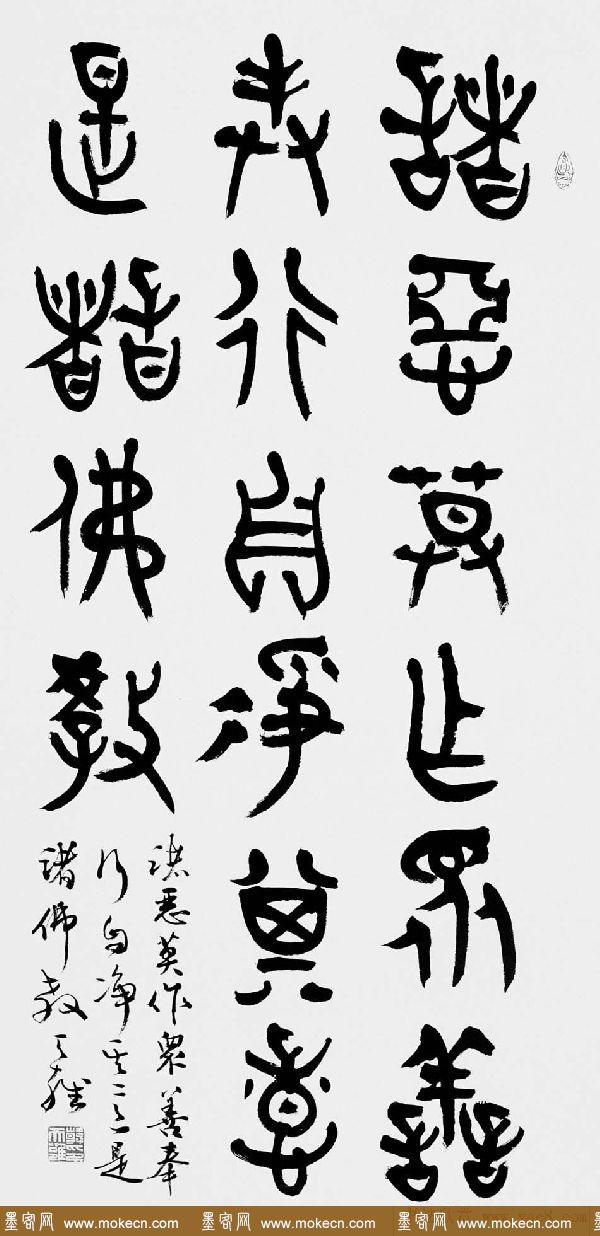 諸惡莫作眾善
奉行自淨其意
是諸佛教
諸惡莫作眾善奉
行自淨其意是
諸佛教 天雍
墨客网 www.mokecn.com 墨客网 www.mokecn.com 墨客网 www.mokecn.com